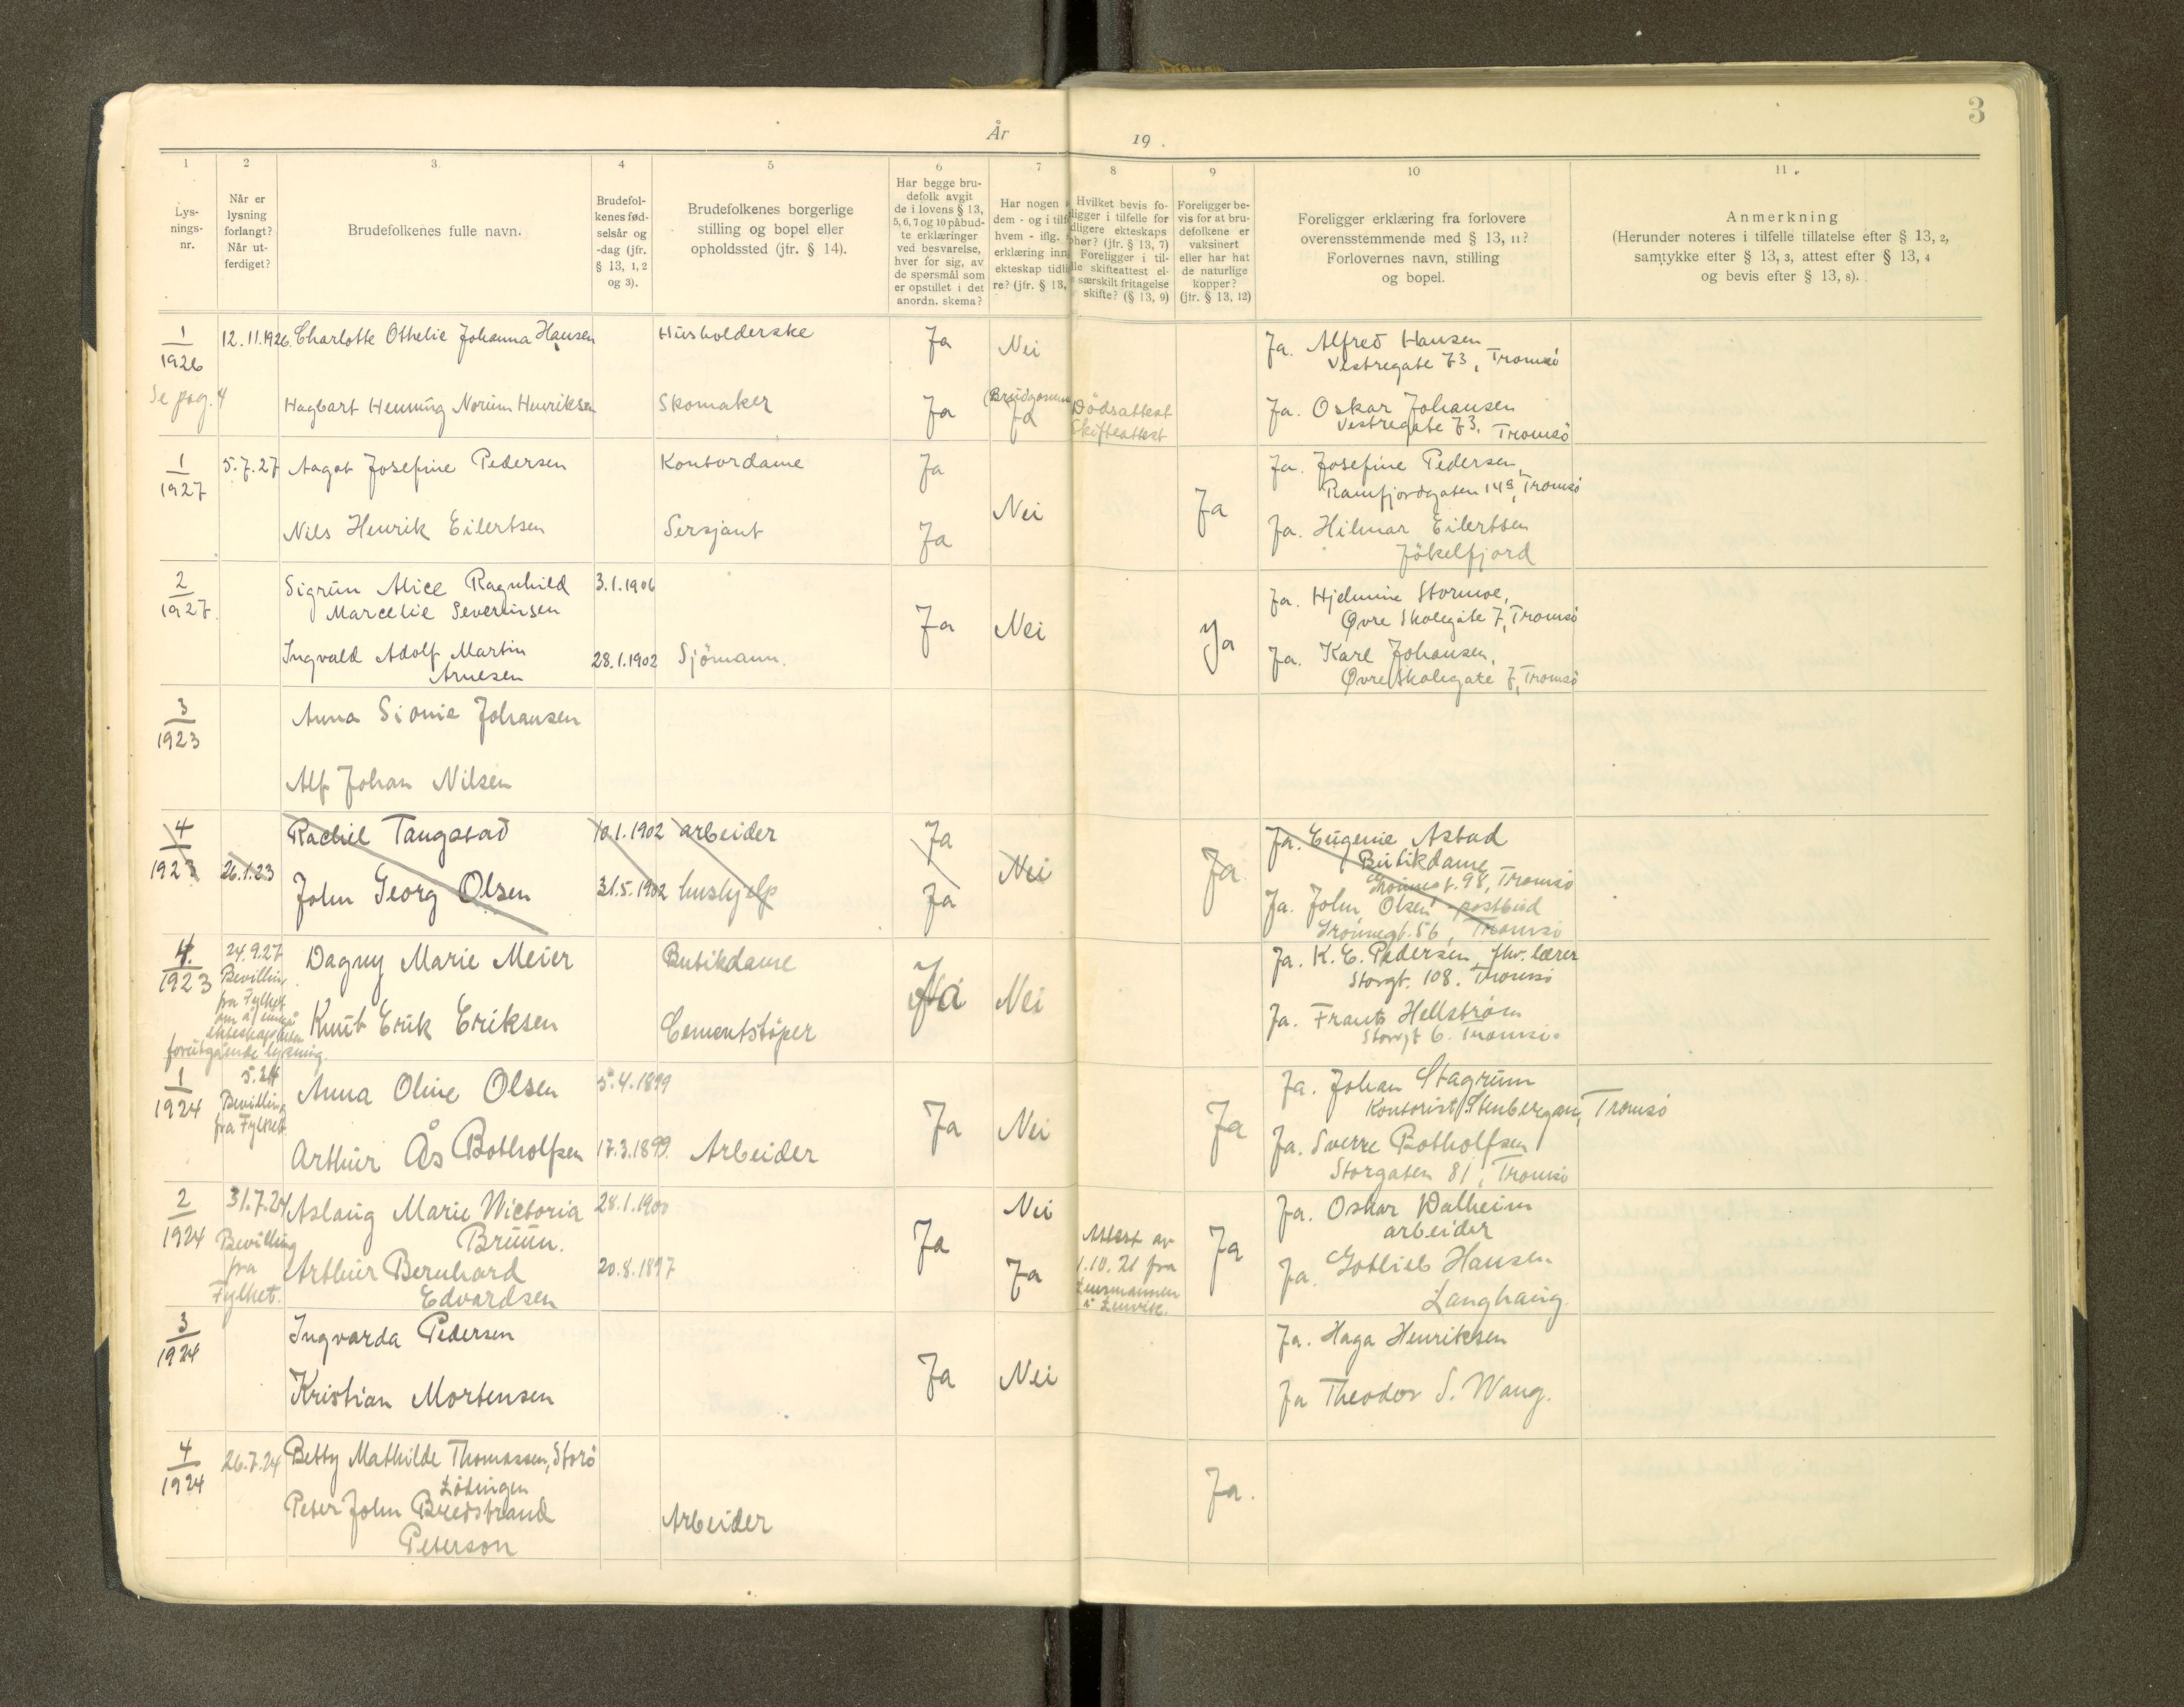 3
År 19 .
1 2 3. 4 5 6 7 8 9 10 11.
Lys-
nings-
nr.
Når er
lysning
forlangt?
Når ut-
ferdiget?
Brudefolkenes fulle navn.
Brudefol-
kenes fød-
selsår og
-dag (jfr.
§ 13, 1, 2
og 3).
Brudefolkenes borgerlige
stilling og bopel eller
opholdssted (jfr. § 14).
Har begge bru-
defolk avgit
de i lovens § 13,
5, 6, 7 og 10 påbud-
te erklæringer
ved besvarelse,
hver for sig, av
de spørsmål som
er opstillet i det
anordn. skema?
Har nogen
dem - og i tilf
hvem - iflg.
erklæring inn
ekteskap tidli
re? (jfr. § 13,
Hvilket bevis fo-
ligger i tilfelle for
dligere ekteskaps
pher? (jfr. § 13, 7)
Foreligger i til-
lle skifteattest el-
særskilt fritagelse
skifte? (§ 13, 9)
Foreligger be-
vis for at bru-
defolkene er
vaksinert
eller har hat
de naturlige
kopper?
(jfr. § 13, 12)
Foreligger erklæring fra forlovere
overensstemmende med § 13, 11?
Forlovernes navn, stilling
og bopel.
Anmerkning
(Herunder noteres i tilfelle tillatelse efter § 13, 2,
samtykke efter § 13, 3, attest efter § 13, 4
og bevis efter § 13, 8).
1
1926
Se pag. 4
12.11.1926.
Charlotte Othelie Johanna Hansen
Husholderske
Ja
Nei
Ja. Alfred Hansen
Vestregate 73, Tromsö
Hagbart Henning Norum Henriksen
Skomaker
Ja
(Brudgommen
Ja
Dödsattest
Skifteattest
Ja. Oskar Johansen
Vestregate 73, Tromsö
1
1927
5.7.27
Aagot Josefine Pedersen
Kontordame
Ja
Nei
Ja
Ja. Josefine Pedersen,
Ramfjordgaten 14, Tromsö
Nils Henrik Eilertsen
Sersjant
Ja
Ja. Hilmar Eilertsen
Jökelfjord
2
1927.
Sigrun Alice Ragnhild
Marcelie Severinsen
3.1.1906
Ja
Nei
Ja
Ja. Hjelmine Stormoe,
Øvre Skolegate 7, Tromsö
Ingvald Adolf Martin
Arnesen
28.1.1902
Sjömann.
Ja. Karl Johansen,
Øvre Skolegate 7, Tromsö
3
1923
Anna Sionie Johansen
Alf Johan Nilsen
4
1923
26.1.23
Rachel Tangstad
10.1.1902
arbeider
Ja
Nei
Ja
Ja. Eugenie Astad
Butikdame
Grönnegt. 98, Tromsö
John Georg Olsen
31.5.1902
hushjelp
Ja
Ja. John Olsen postbud
Grönnegt. 56, Tromsö
4.
1923
24.9.27
Bevilling
fra Fylket
om å inngå
ekteskap uten
forutgående lysning.
Dagny Marie Meier
Butikdame
Ja
Nei
Ja. K. E. Pedersen, lærer
Storgt. 108. Tromsö
Knut Erik Eriksen
Cementstöper
Ja. Frants Hellstrøm
Storgt 6. Tromsö.
1
1924
5.24
Bevilling
fra Fylket.
Anna Oline Olsen
5.4.1899
Ja
Nei
Ja
Ja. Johan Stagrum
Kontorist, Stenbergan, Tromsö
Arthur Ås Botholfsen
17.3.1899.
Arbeider
Ja. Sverre Botholfsen
Storgaten 81, Tromsö
2
1924
31.7.24
Bevilling
fra
Fylket.
Aslaug Marie Victoria
Bruun.
28.1.1900
Ja
Nei
Attest av
1.10.21 fra
Lensmannen
i Lenvik.
Ja
Ja. Oskar Walheim
arbeider
Arthur Bernhard
Edvardsen
20.8.1897
Ja
Ja. Gotlieb Hansen
Langhaug.
3
1924
Ingvarda Pedersen
Ja
Nei
Ja. Haga Henriksen
Kristian Mortensen
Ja Theodor S. Wang.
4
1924
26.7.24
Betty Mathilde Thomassen, Storö
Lödingen
Ja.
Peter John Bredstrand
Peterson
Arbeider